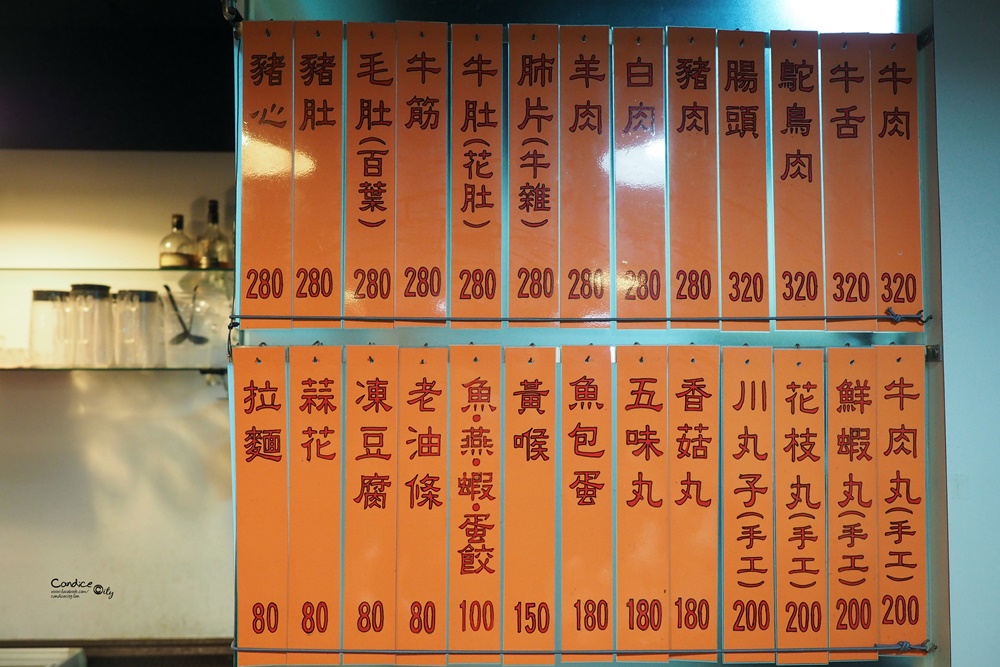 牛肉 320
牛舌 320
鴕鳥肉 320
腸頭 320
豬肉 280
白肉 280
羊肉 280
肺片(牛雜) 280
牛肚(花肚) 280
牛筋 280
毛肚(百葉) 280
豬肚 280
豬心 280
牛肉丸(手工) 200
鮮蝦丸(手工) 200
花枝丸(手工) 200
川丸子(手工) 200
香菇丸 180
五味丸 180
魚包蛋 180
黃喉 150
魚·燕·蝦·蛋餃 100
老油條 80
凍豆腐 80
蒜花 80
拉麵 80
Candice City